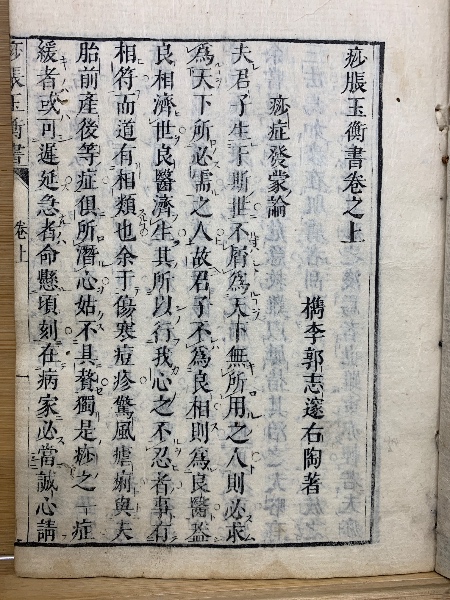 痧脹玉衡書卷之上
檇李郭志邃右陶著
痧症發蒙論
夫君子生于斯世不屑爲天下無所用之人則必求
爲天下所必需之人故君子不爲良相則爲良醫盖
良相濟世良醫濟生其所以行我心之不忍者事有
相符而道有相類也余于傷寒痘疹驚風瘧痢與夫
胎前產後等症俱所潛心姑不具贅獨是痧之一症
緩者或可遲延急者命懸頃刻在病家必當誠心請
痧脹玉衡書
卷上
一